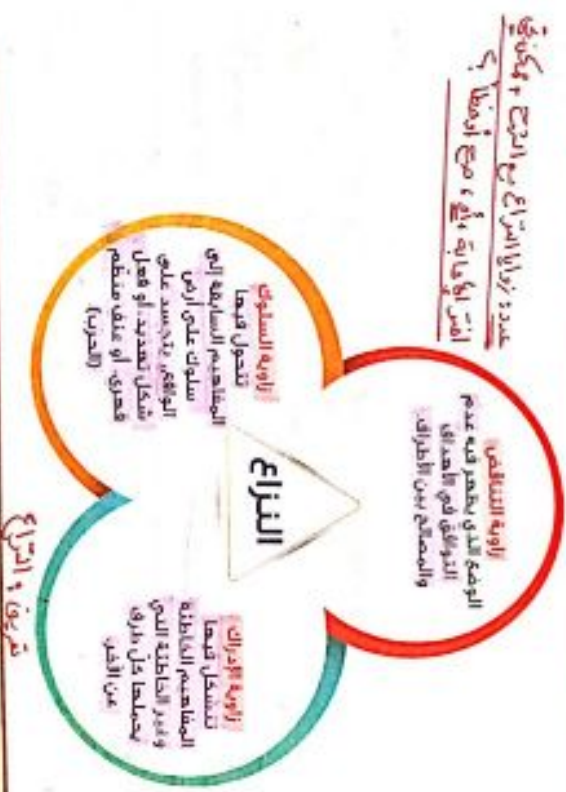 عدد زوايا النزاع مع الشرح ، ويمكن في
نفس الإجابة ، أو صح أم خطأ ؟
زاوية التناقض
الوضع الذي يظهر فيه عدم
التوافق في الأهداف
والمصالح بين الأطراف.
النزاع
زاوية السلوك
تتحول فيها
المفاهيم السابقة إلى
سلوك على أرض
الواقع، يتجسد على
شكل تهديد، أو فعل
قهري، أو عنف منظم
(الحرب)
زاوية الإدراك
تتشكل فيها
المفاهيم الخاطئة
وغير الخاطئة التي
يحملها كل طرف
عن الآخر.
تعريف ؛ النزاع